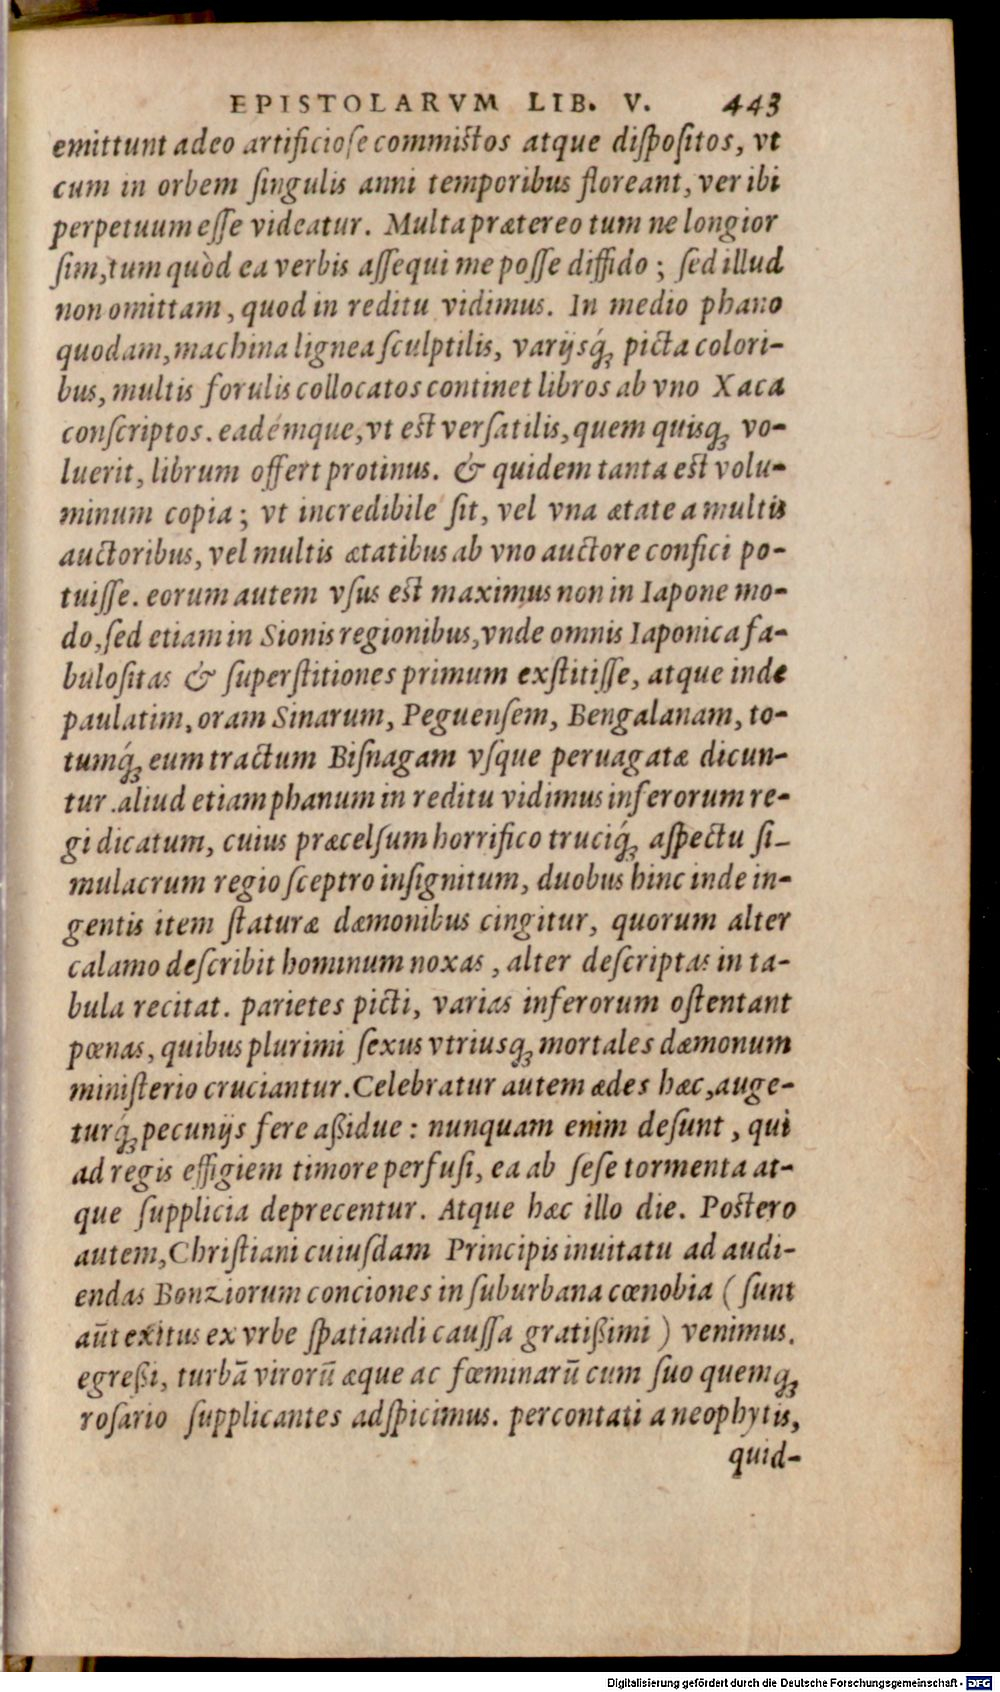 EPISTOLARVM LIB. V. 443
emittunt adeo artificiose commistos atque dispositos, vt
cum in orbem singulis anni temporibus floreant, ver ibi
perpetuum esse videatur. Multa prætereo tum ne longior
sim, tum quòd ea verbis assequi me posse diffido; sed illud
non omittam, quod in reditu vidimus. In medio phano
quodam, machina lignea sculptilis, varijsq́ꝫ picta colori-
bus, multis forulis collocatos continet libros ab vno Xaca
conscriptos. eadémque, vt est versatilis, quem quisqꝫ vo-
luerit, librum offert protinus. & quidem tanta est volu-
minum copia; vt incredibile sit, vel vna ætate a multis
auctoribus, vel multis ætatibus ab vno auctore confici po-
tuisse. eorum autem vsus est maximus non in Iapone mo-
do, sed etiam in Sionis regionibus, vnde omnis Iaponica fa-
bulositas & superstitiones primum exstitisse, atque inde
paulatim, oram Sinarum, Peguensem, Bengalanam, to-
tumq́ꝫ eum tractum Bisnagam vsque peruagatæ dicun-
tur. aliud etiam phanum in reditu vidimus inferorum re-
gi dicatum, cuius præcelsum horrifico truciq́ꝫ aspectu si-
mulacrum regio sceptro insignitum, duobus hinc inde in-
gentis item staturæ dæmonibus cingitur, quorum alter
calamo describit hominum noxas, alter descriptas in ta-
bula recitat. parietes picti, varias inferorum ostentant
pœnas, quibus plurimi sexus vtriusqꝫ mortales dæmonum
ministerio cruciantur. Celebratur autem ædes hæc, auge-
turq́ꝫ pecunijs fere aßidue: nunquam enim desunt, qui
ad regis effigiem timore perfusi, ea ab sese tormenta at-
que supplicia deprecentur. Atque hæc illo die. Postero
autem, Christiani cuiusdam Principis inuitatu ad audi-
endas Bonziorum conciones in suburbana cœnobia (sunt
aūt exitus ex vrbe spatiandi caussa gratißimi) venimus.
egreßi, turbā virorū æque ac fœminarū cum suo quemqꝫ
rosario supplicantes adspicimus. percontati a neophytis,
quid-
Digitalisierung gefördert durch die Deutsche Forschungsgemeinschaft - DFG